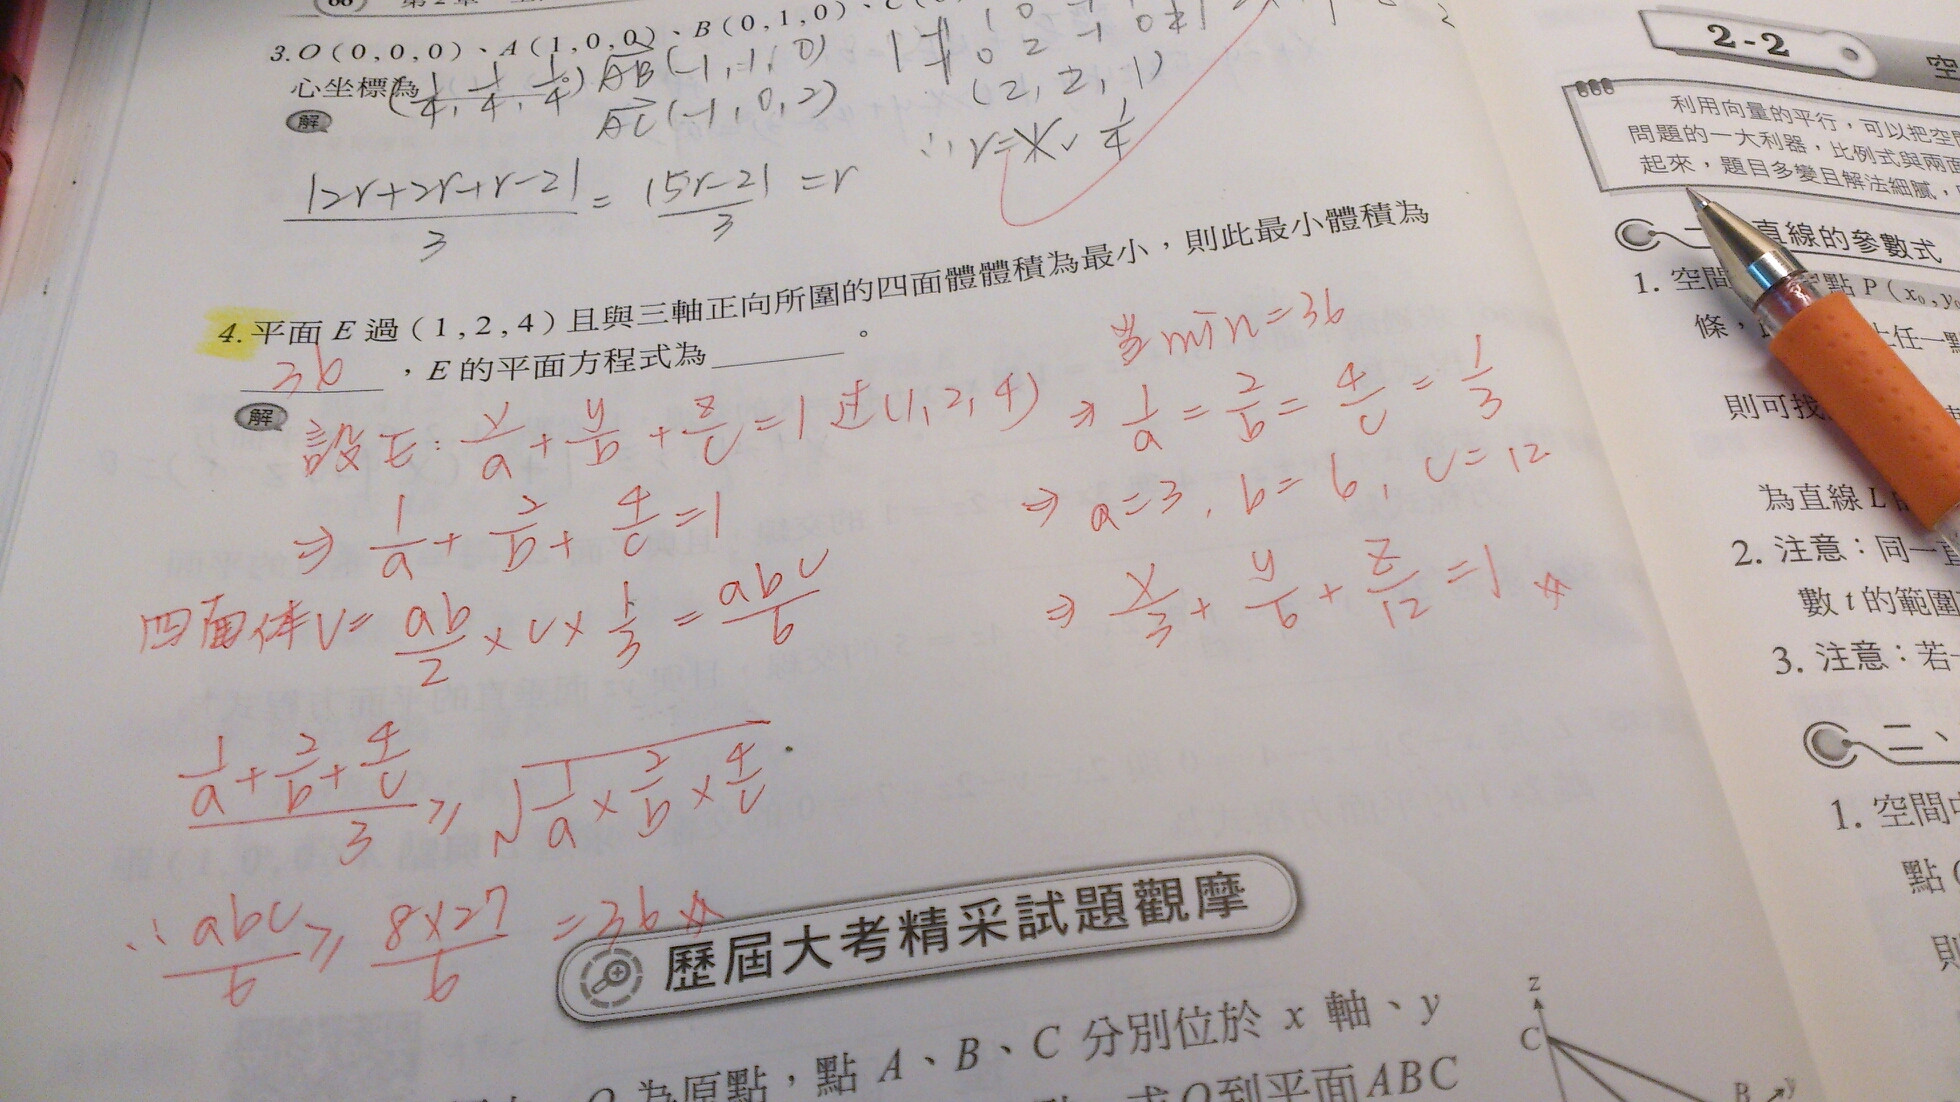 3. O(0,0,0)、A(1,0,0)、B(0,1,0)、C(
心坐標為 (1/4, 1/4, 1/4) AB(-1,1,0)
AC(-1,0,2)
(2,2,1)
解
|2r+2r+r-2|/3 = |5r-2|/3 = r
4. 平面 E 過(1,2,4)且與三軸正向所圍的四面體體積為最小,則此最小體積為
36 ,E 的平面方程式為________。
解
設E: x/a + y/b + z/c = 1 过(1,2,4)
⇒ 1/a + 2/b + 4/c = 1
四面体V = ab/2 × c × 1/3 = abc/6
(1/a + 2/b + 4/c)/3 ≥ √(1/a × 2/b × 4/c)
∴ abc/6 ≥ 8×27/6 = 36
當min=36
⇒ 1/a = 2/b = 4/c = 1/3
⇒ a=3, b=6, c=12
⇒ x/3 + y/6 + z/12 = 1
歷屆大考精采試題觀摩
為原點,點 A、B、C 分別位於 x 軸、y
求O到平面ABC
z
C
B
y
2-2
空
利用向量的平行,可以把空間
問題的一大利器,比例式與兩面
起來,題目多變且解法細膩,
直線的參數式
1. 空間
點 P(x₀,y₀
條,
上任一點
則可找
為直線 L 的
2. 注意:同一直
數 t 的範圍
3. 注意:若
二、
1. 空間中
點(
則